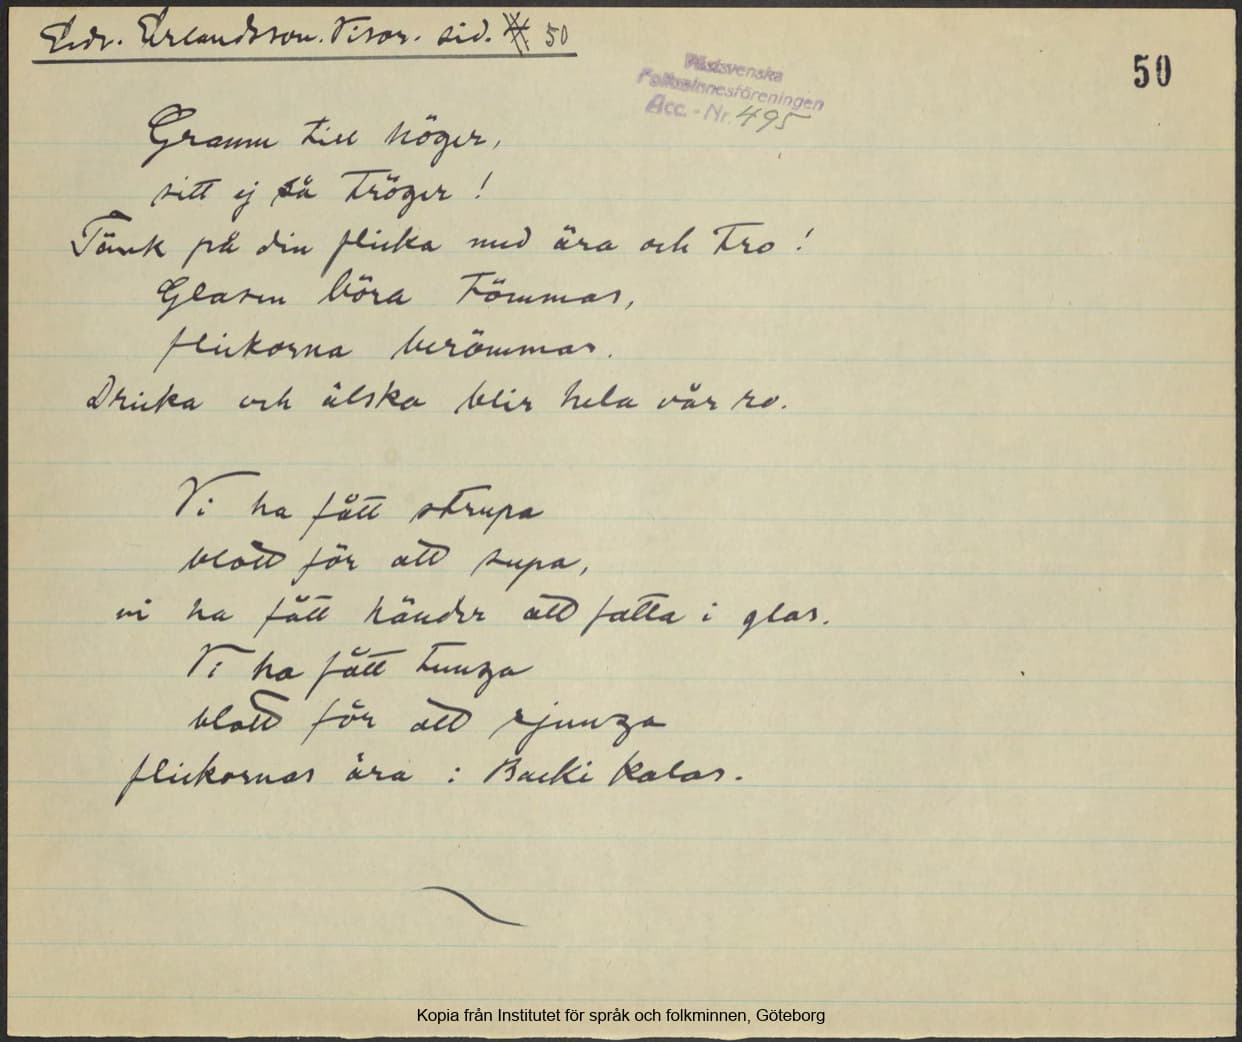 Edv. Erlandsson. Visor. sid. 50
50
Västsvenska
Folkminnesföreningen
Acc. - Nr. 495
Granne till höger,
sitt ej så tröger!
Tänk på din flicka med ära och tro!
Glasen böra tömmas,
flickorna berömmas.
Dricka och älska blir hela vår ro.
Vi ha fått strupa
blott för att supa,
vi ha fått händer att fatta i glas.
Vi ha fått tunga
blott för att sjunga
flickornas ära i Backi kalas.
Kopia från Institutet för språk och folkminnen, Göteborg